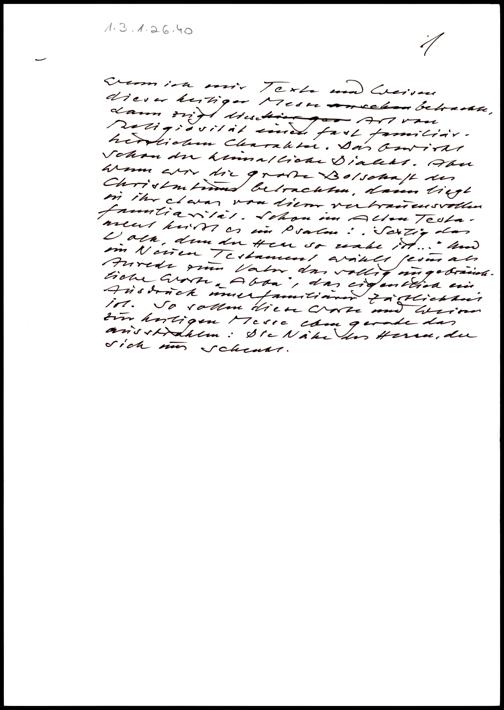 1.3.1.26.40
1
Wenn ich mir Texte und Weisen
dieser heiligen Messe ansehen betrachte,
dann zeigt diese Art von
Religiosität einen fast familiär-
herzlichen Charakter. Das bewirkt
schon der heimatliche Dialekt. Aber
wenn wir die große Botschaft des
Christentums betrachten, dann liegt
in ihr etwas von dieser vertrauensvollen
Familiarität. Schon im Alten Testa-
ment heißt es im Psalm: "Selig das
Volk, dem der Herr so nahe ist..." Und
im Neuen Testament wählt Jesus als
Anrede zum Vater das völlig ungebräuch-
liche Wort "Abba", das eigentlich ein
Ausdruck inner familiärer Zärtlichkeit
ist. So sollen diese Worte und Weisen
zur heiligen Messe eben gerade das
ausstrahlen: Die Nähe des Herrn, der
sich uns schenkt.